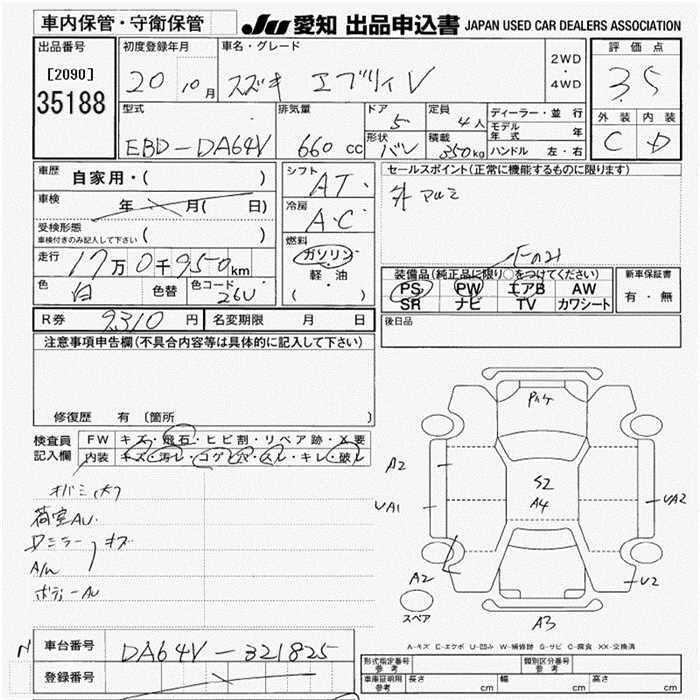 車内保管・守衛保管
JU 愛知 出品申込書 JAPAN USED CAR DEALERS ASSOCIATION
出品番号
[2090]
35188
初度登録年月
20 10月
車名・グレード
スズキ エブリィV
2WD
・
4WD
評価点
3.5
外装 内装
C D
型式
EBD-DA64V
排気量
660 cc
ドア
5
定員
4人
形状
バン
積載
350kg
ディーラー・並行
モデル年式 年
ハンドル 左・右
車歴 自家用・( )
車検 年 月( 日)
受検形態
車検付きのみ記入して下さい ( )
走行 17万0千950km
色 白 色替 色コード 26U
シフト AT.
冷房 A.C
燃料
ガソリン
軽・油
( )
セールスポイント(正常に機能するものに限ります)
外アルミ
装備品(純正品に限り○をつけてください)
PS PW エアB AW
SR ナビ TV カワシート
新車保証書
有・無
R券 9310円 名変期限 月 日
後日品
注意事項申告欄(不具合内容等は具体的に記入して下さい)
修復歴 有 〔箇所 〕
検査員記入欄
FW キズ・飛石・ヒビ割・リペア跡・X要
内装 キズ・汚レ・コゲ・穴・スレ・キレ・破レ
荷室AU.
Dミラーキズ
ボディーAU
A2
UA1
A2
S2
A4
UA2
U2
A3
スペア
A-キズ E-エクボ U-凹み W-補修跡 S-サビ C-腐食 XX-交換済
車台番号 DA64V-321825
登録番号
形式指定番号 参考
類別区分番号 参考
車庫証明用 参考 長さ cm 幅 cm 高さ cm